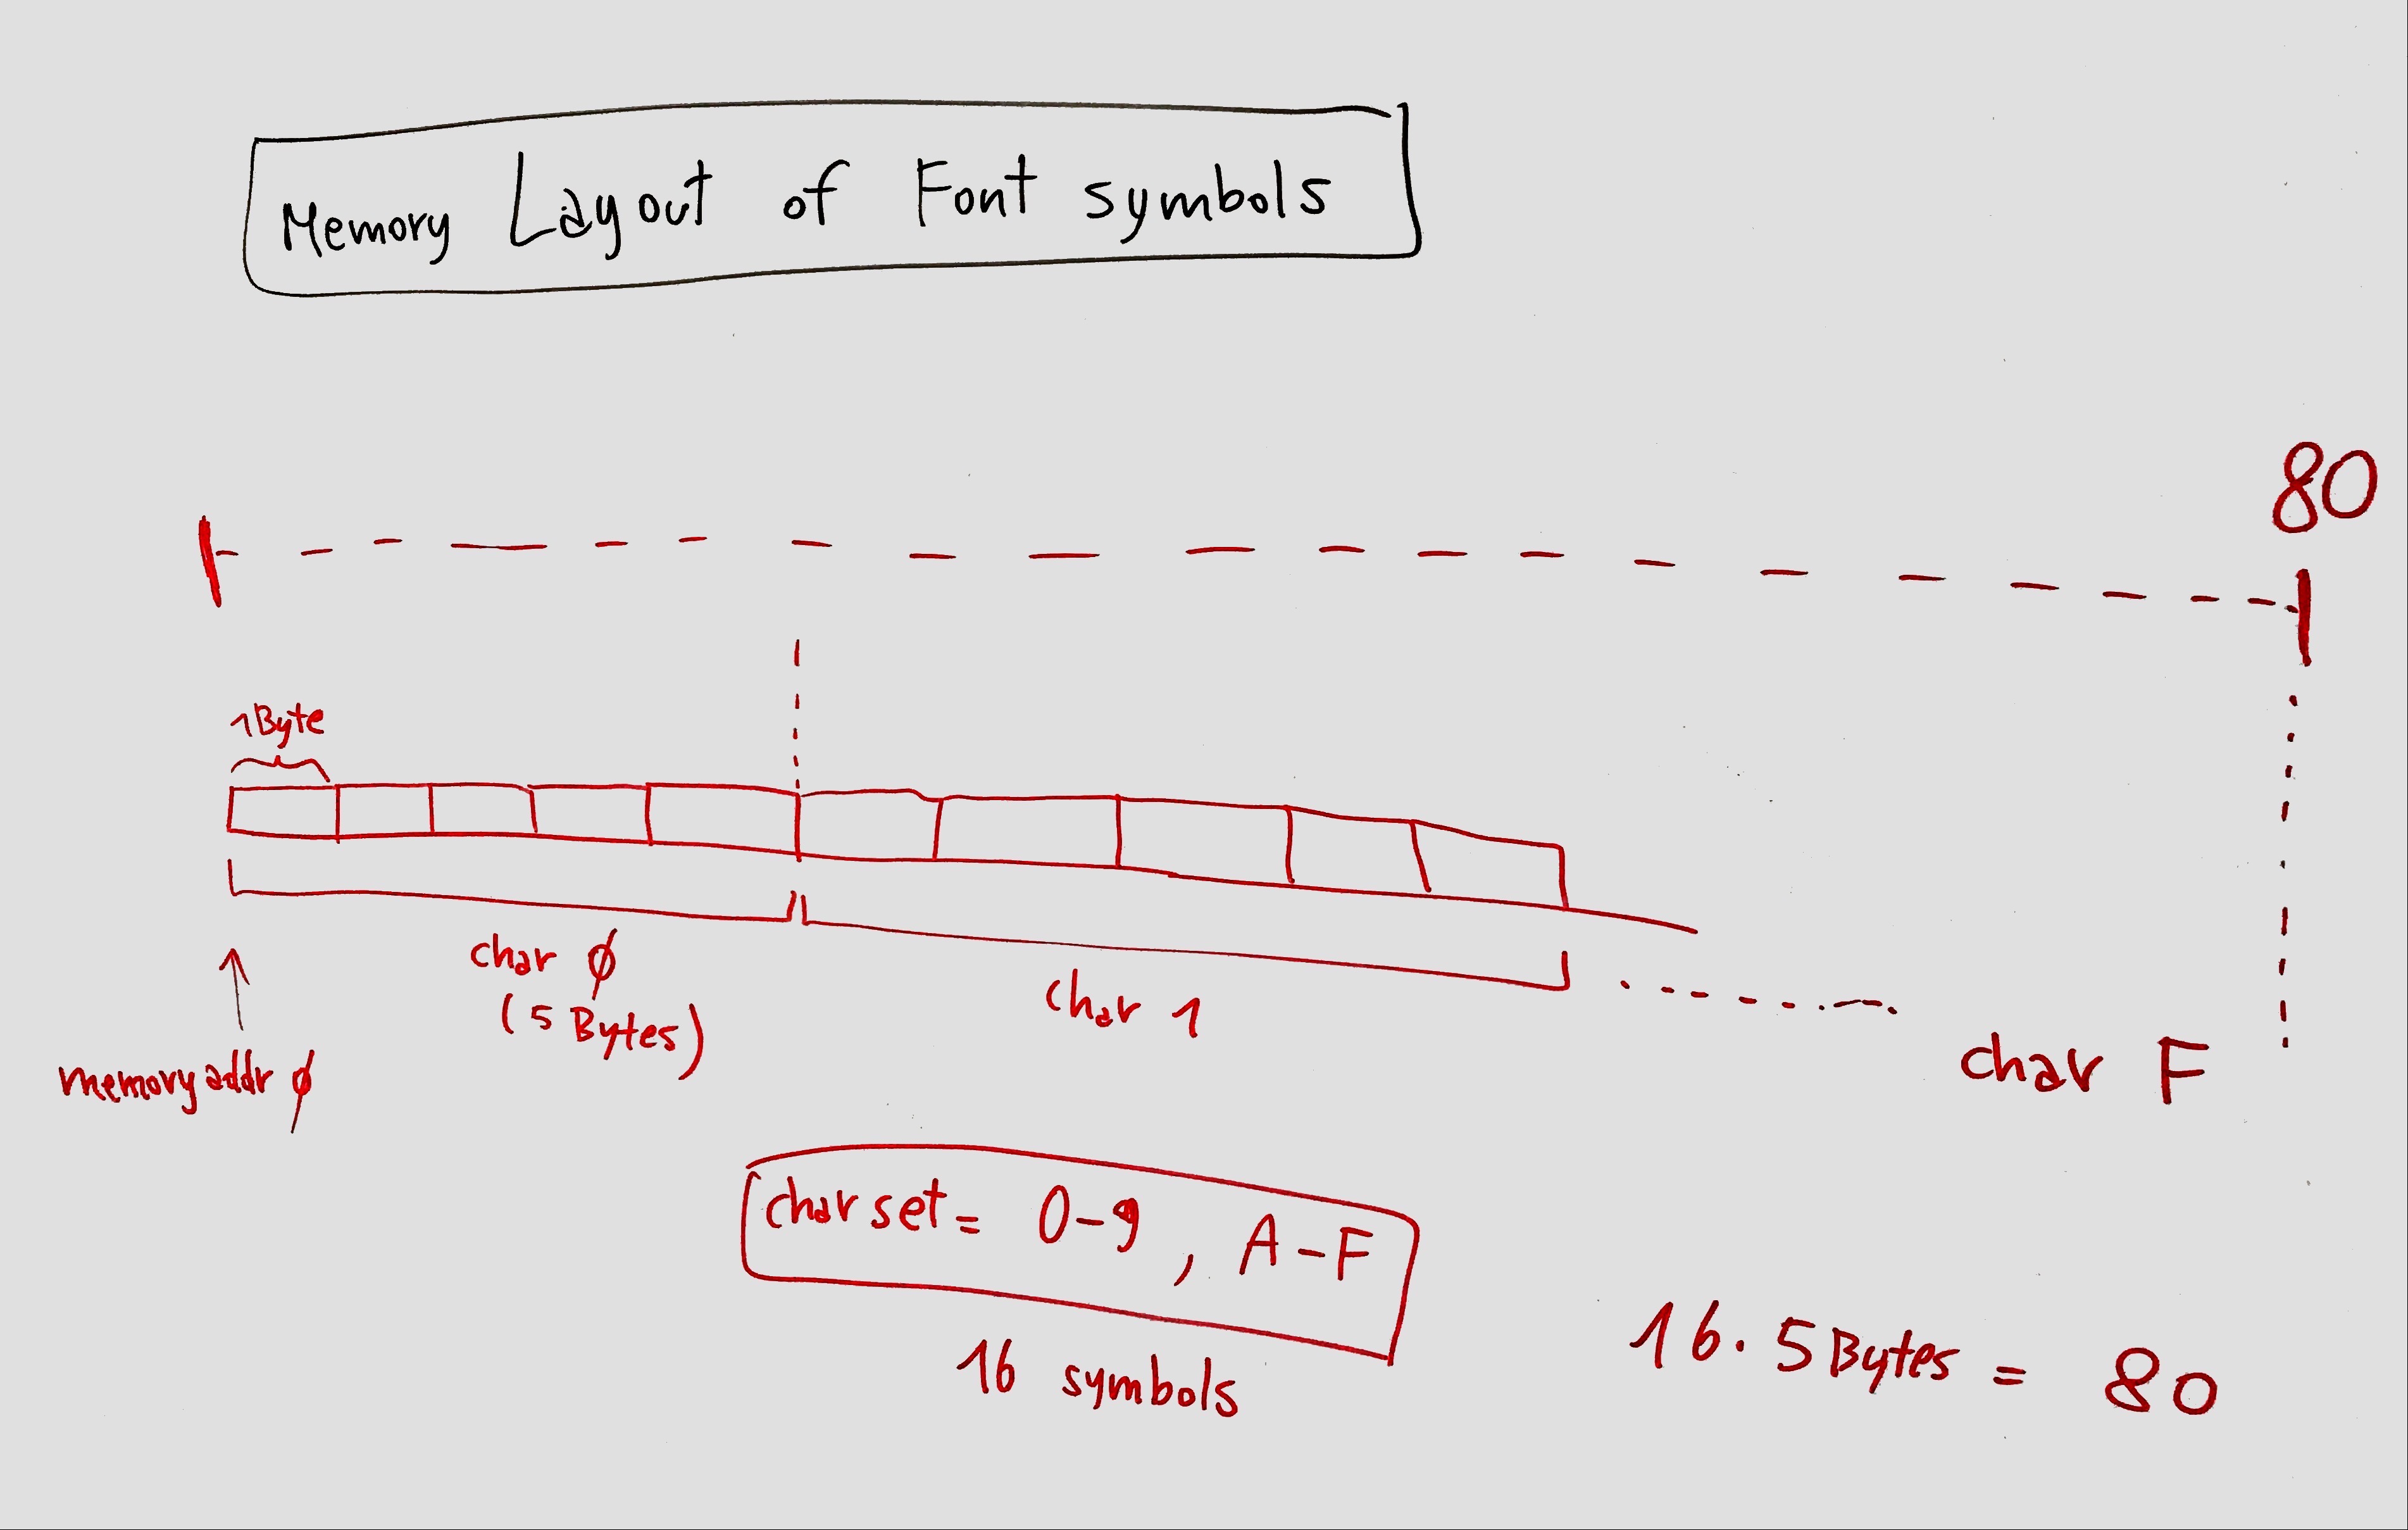 Memory Layout of Font symbols
80
1Byte
char ø
(5 Bytes)
char 1
char F
memory addr ø
charset = 0-9, A-F
16 symbols
16 · 5 Bytes = 80